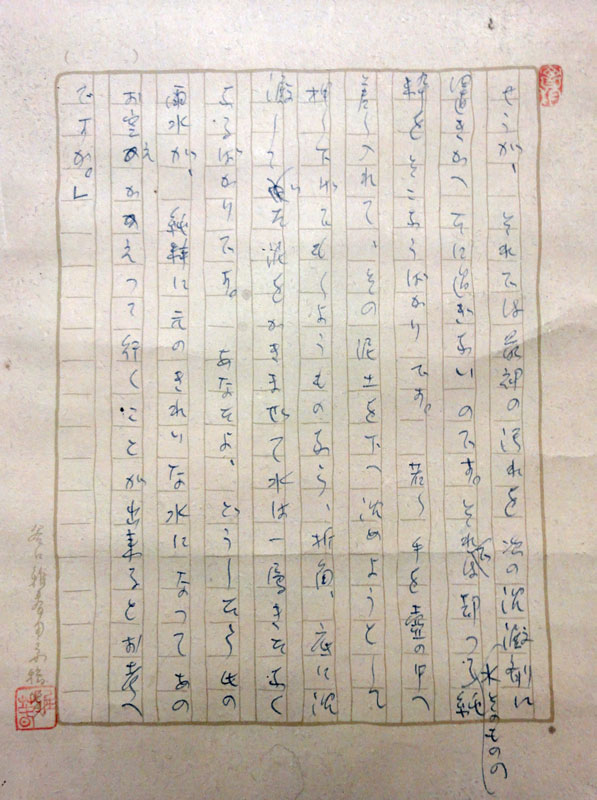 せうが、 それでは の汚れを 次の沈澱剤に
置きかへたに過ぎないのです。それでは却つて純
水そのものの
粋をそこなうばかりです。 若し手を壺の中へ
差し入れて、その泥土を下へ沈めようとして
押し下げでもしようものなら、折角、底に沈
澱してゐた泥をかきまぜて水は一層きたなく
なるばかりです。 あなたよ、どうしたら此の
雨水が、 純粋に元のきれいな水になつてあの
お空へかえつて行くことが出来るとお考へ
ですか。」
谷口雅春